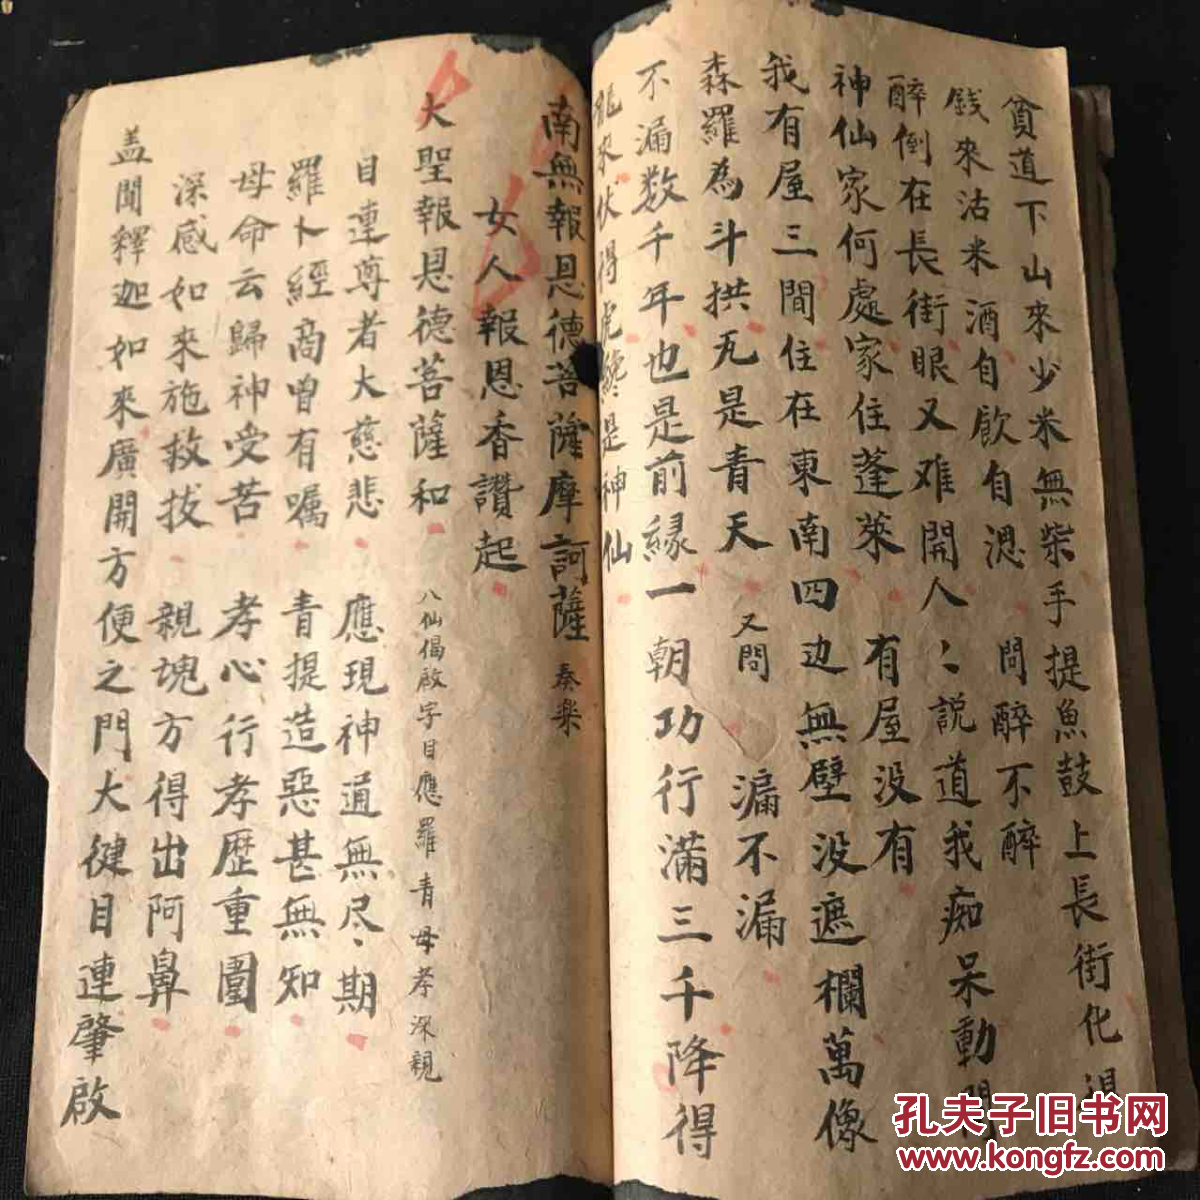 貧道下山來少米無柴手提魚鼓上長街化得
錢來沽米酒自飲自漝 問醉不醉
醉倒在長街眼又难開人〻說道我痴呆動問
神仙家何處家住蓬萊 有屋没有
我有屋三間住在東南四边無壁没遮欄萬像
森羅為斗拱无是青天 又問 漏不漏
不漏数千年也是前緣一朝功行滿三千降得
龍來伏得虎纔是神仙
南無報恩德菩薩摩訶薩 奏樂
女人報恩香讚起
大聖報恩德菩薩和 八仙偈啟字目應羅青母孝深親
目連尊者大慈悲 應現神通無尽期
羅卜經商曾有嘱 青提造惡甚無知
母命云歸神受苦 孝心行孝歷重圍
深感如來施救拔 親塊方得出阿鼻
盖聞釋迦如來廣開方便之門大健目連肇啟
孔夫子旧书网
www.kongfz.com